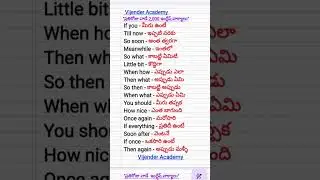 Vijender Academy
"ప్రతిరోజు వాడే 2,000 ఇంగ్లీష్ వాక్యాలు"
If you - మీరు ఉంటే
Till now - ఇప్పటి వరకు
So soon - అంత త్వరగా
Meanwhile - ఇంతలో
So what - కాబట్టి ఏమిటి
Little bit - కొద్దిగా
When how - ఎప్పుడు ఎలా
Then what - అప్పుడు ఏమి
So then - కాబట్టి అప్పుడు
When what - ఎప్పుడు ఏమి
You should - మీరు తప్పక
How nice - ఎంత బాగుంది
Once again - మరోసారి
If everything - ప్రతిదీ ఉంటే
Soon after - వెంటనే
If once - ఒకసారి ఉంటే
Then again - అప్పుడు మళ్ళీ
Vijender Academy
"ప్రతిరోజు వాడే ఇంగ్లీష్ వాక్యాలు"